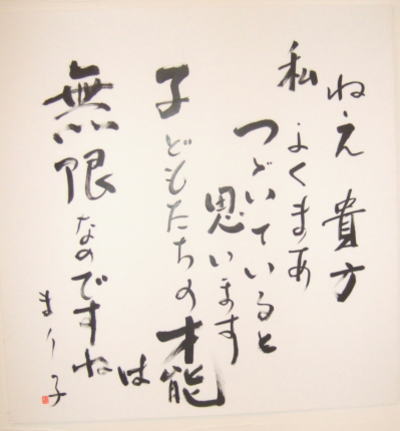 ねえ 貴方
私 よくまあ
つづいていると
思います
子どもたちの才能
は
無限なのですね
まり子